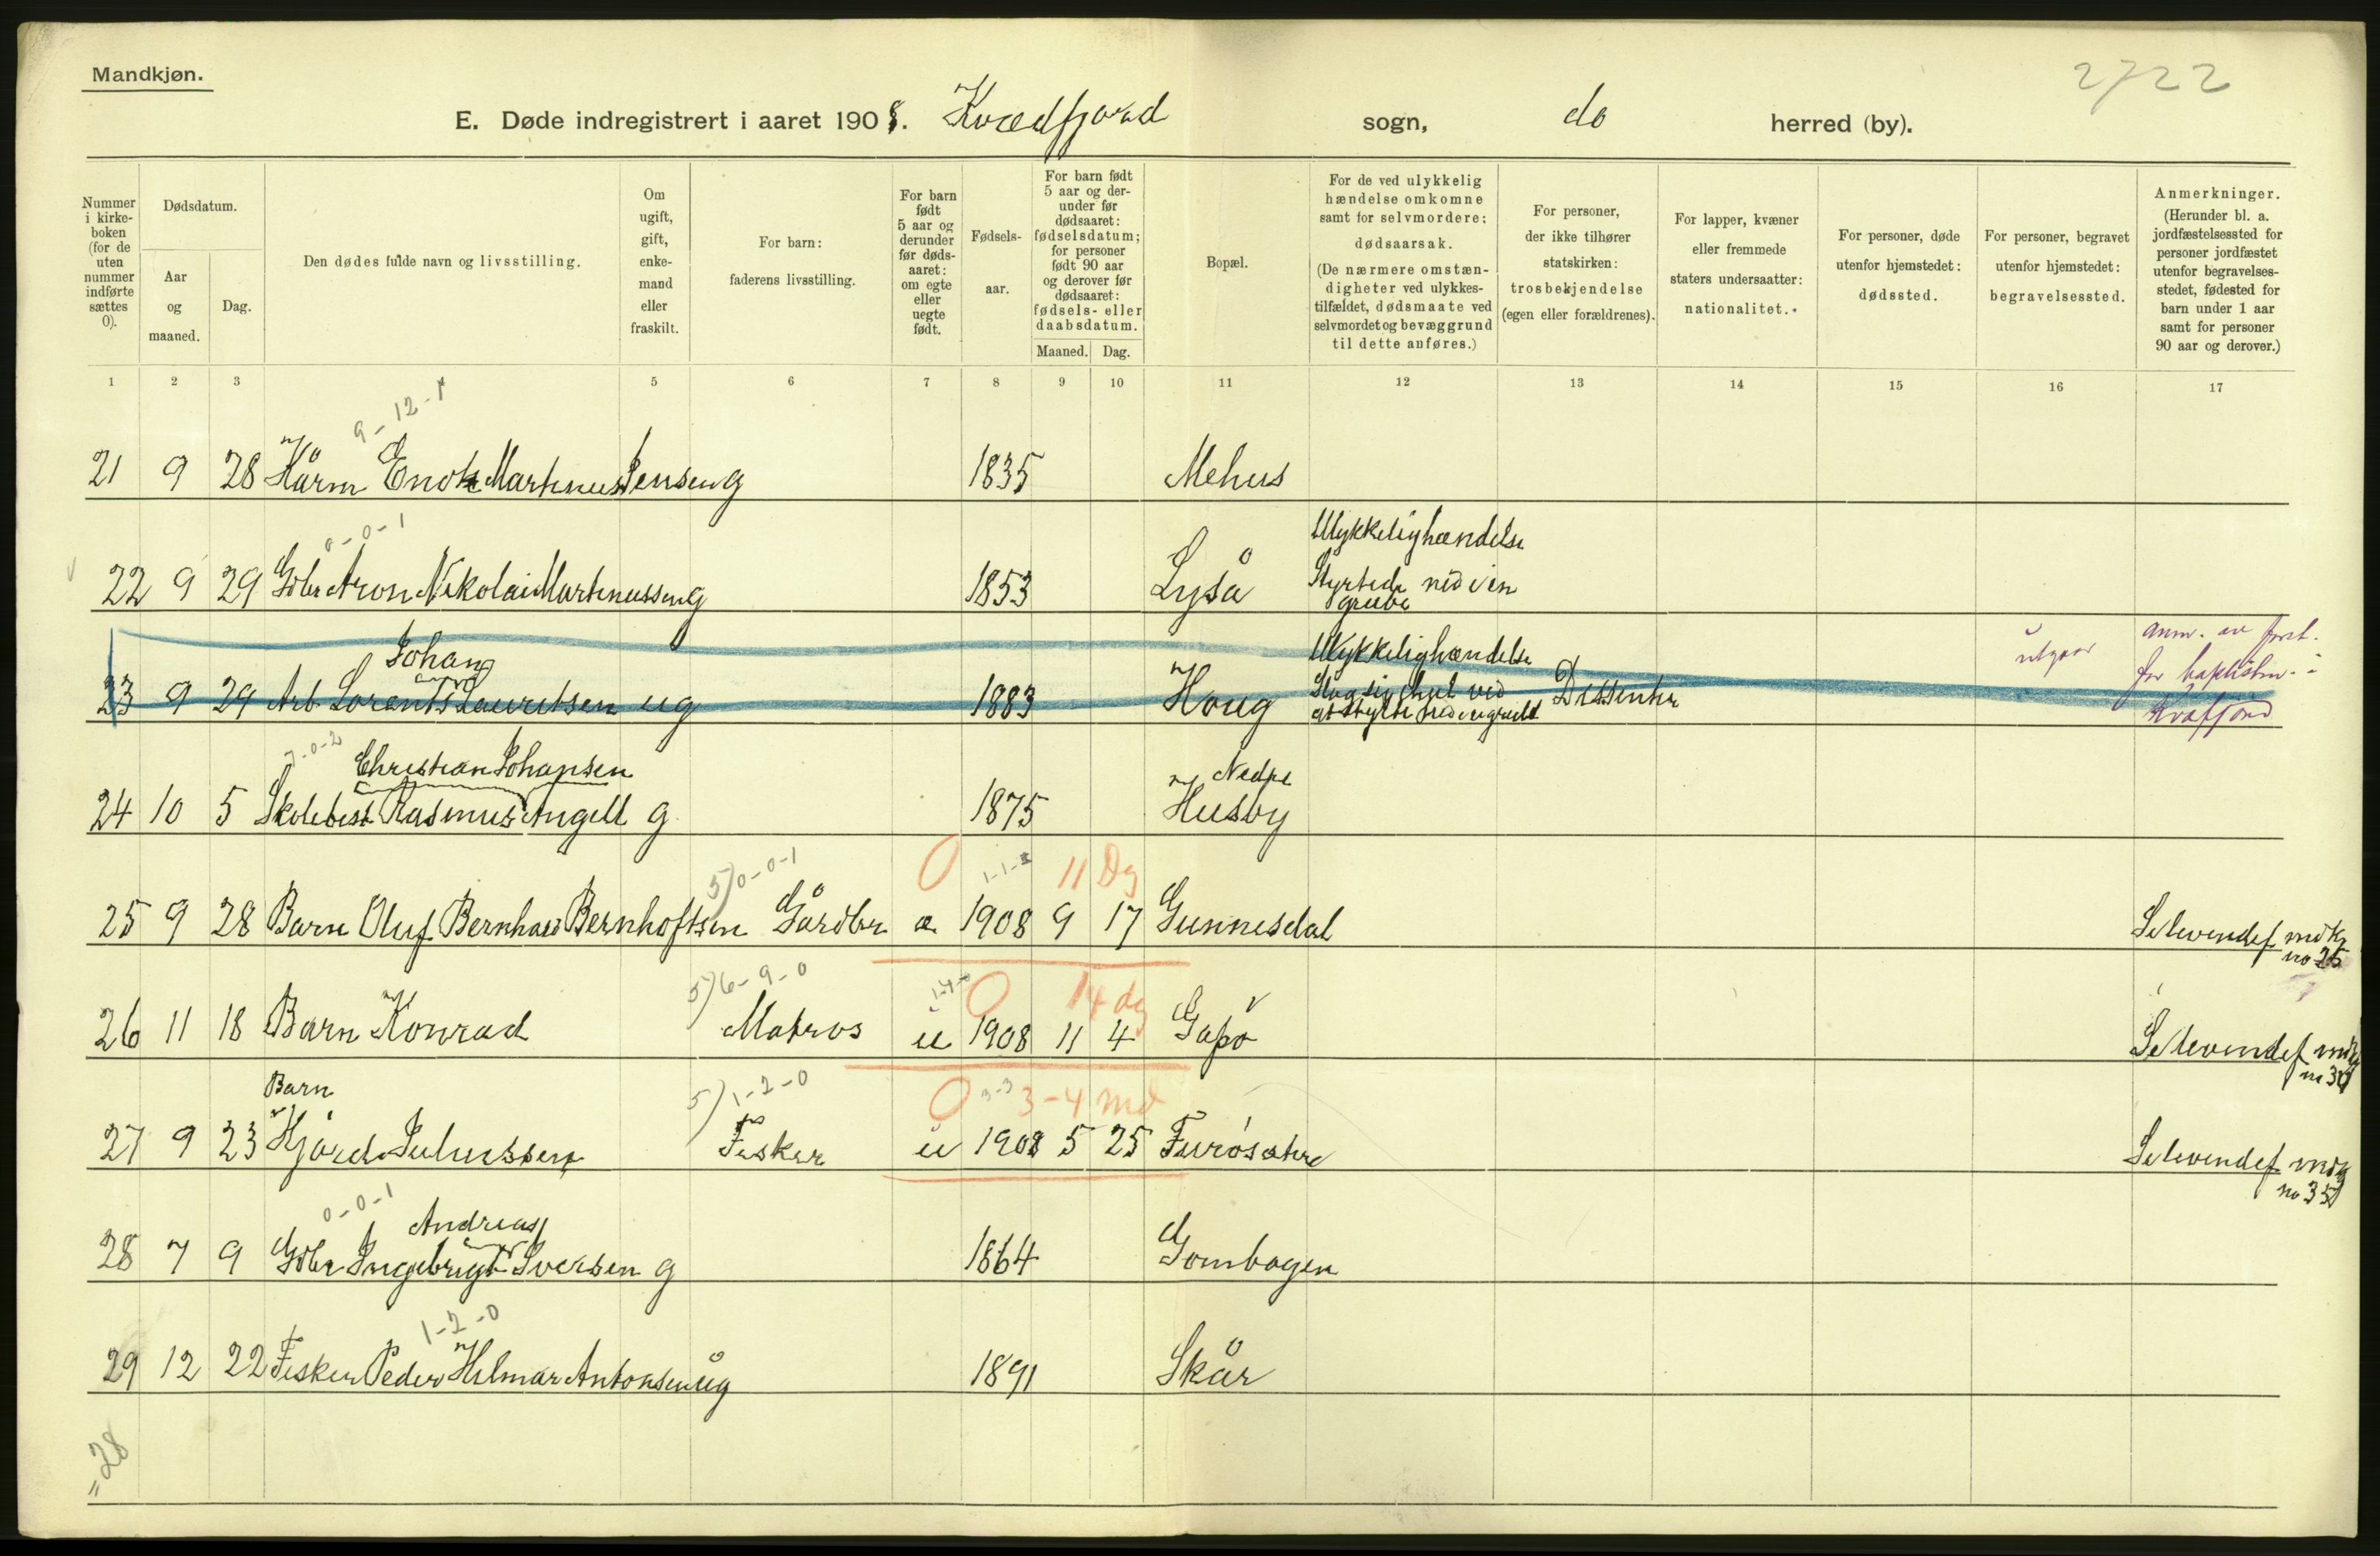 Mandkjøn.
2722
E. Døde indregistrert i aaret 1908. Kvædfjord sogn, do herred (by).
Nummer i kirkeboken (for de uten nummer indførte sættes 0).
Dødsdatum.
Aar og maaned.
Dag.
Den dødes fulde navn og livsstilling.
Om ugift, gift, enkemand eller fraskilt.
For barn: faderens livsstilling.
For barn født 5 aar og derunder før dødsaaret: om egte eller uegte født.
Fødselsaar.
For barn født 5 aar og derunder før dødsaaret: fødselsdatum; for personer født 90 aar og derover før dødsaaret: fødsels- eller daabsdatum.
Maaned. Dag.
Bopæl.
For de ved ulykkelig hændelse omkomne samt for selvmordere: dødsaarsak. (De nærmere omstændigheter ved ulykkestilfældet, dødsmaate ved selvmordet og bevæggrund til dette anføres.)
For personer, der ikke tilhører statskirken: trosbekjendelse (egen eller forældrenes).
For lapper, kvæner eller fremmede staters undersaatter: nationalitet.
For personer, døde utenfor hjemstedet: dødssted.
For personer, begravet utenfor hjemstedet: begravelsessted.
Anmerkninger. (Herunder bl. a. jordfæstelsessted for personer jordfæstet utenfor begravelsesstedet, fødested for barn under 1 aar samt for personer 90 aar og derover.)
1 2 3 5 6 7 8 9 10 11 12 13 14 15 16 17
9-12-1
21 9 28 Kårm Enok Martinus Jensen g 1835 Mehus
0-0-1
22 9 29 Gbr Aron Nikolai Martinussen g 1853 Lyså Ulykkelig hændelse
Styrtede ned i en
grube
Johan
23 9 29 Arb. Lorents Lauritsen ug 1883 Houg Ulykkelig hændelse
Slog sig ihjel ved Dissenter
utgaar
anm. av forst.
for baptistm. i
Kvæfjord
7-0-2
Christian Johansen
24 10 5 Skolebest. Rasmus Angell g 1875 Nedre
Husby
5) 0-0-1
0 11 Dg
25 9 28 Barn Oluf Bernhard Bernhoftsen Gårdbr æ 1908 9 17 Gunnesdal Se levendef mdk
no 25
5) 6-9-0
0 14 dg
26 11 18 Barn Konrad Matros u 1908 11 4 Gapø Se levendef mdk
no 30
5) 1-2-0
0 3-3 3-4 md
Barn
27 9 23 Hjård Juliussen Fisker u 1908 5 25 Furøsætre Se levendef mdk
no 35
0-0-1
Andreas
28 7 9 Gbr Ingebrigt Iversen g 1864 Gombogen
1-2-0
29 12 22 Fisker Peder Hilmar Antonsen ug 1891 Skår
=28